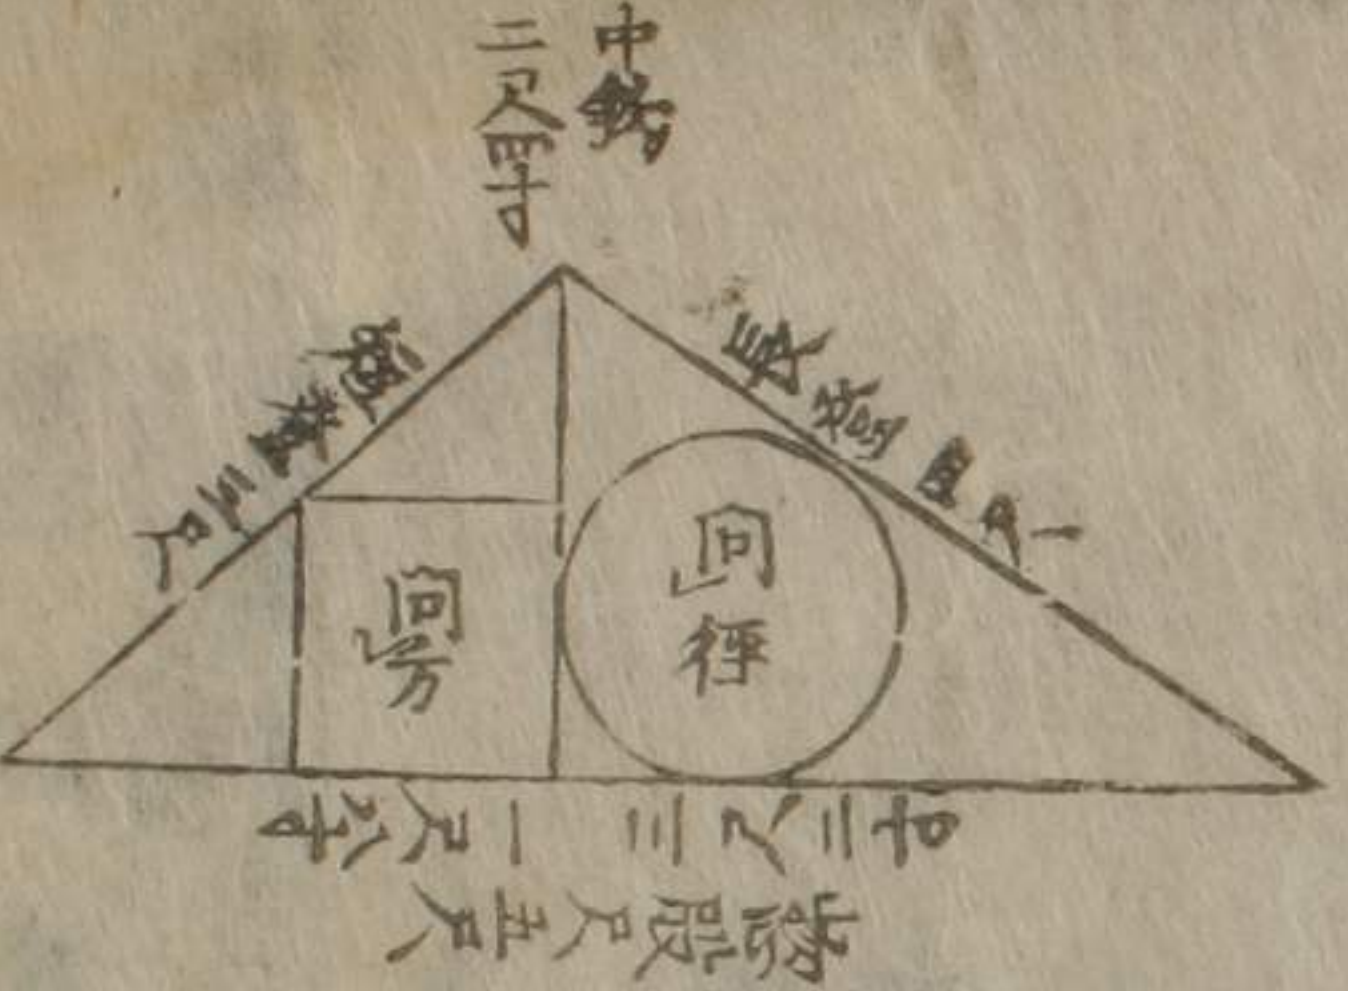 中鈎
二尺四寸
三尺
長弦四尺
問方
問径
一尺八寸
三尺二寸
五尺